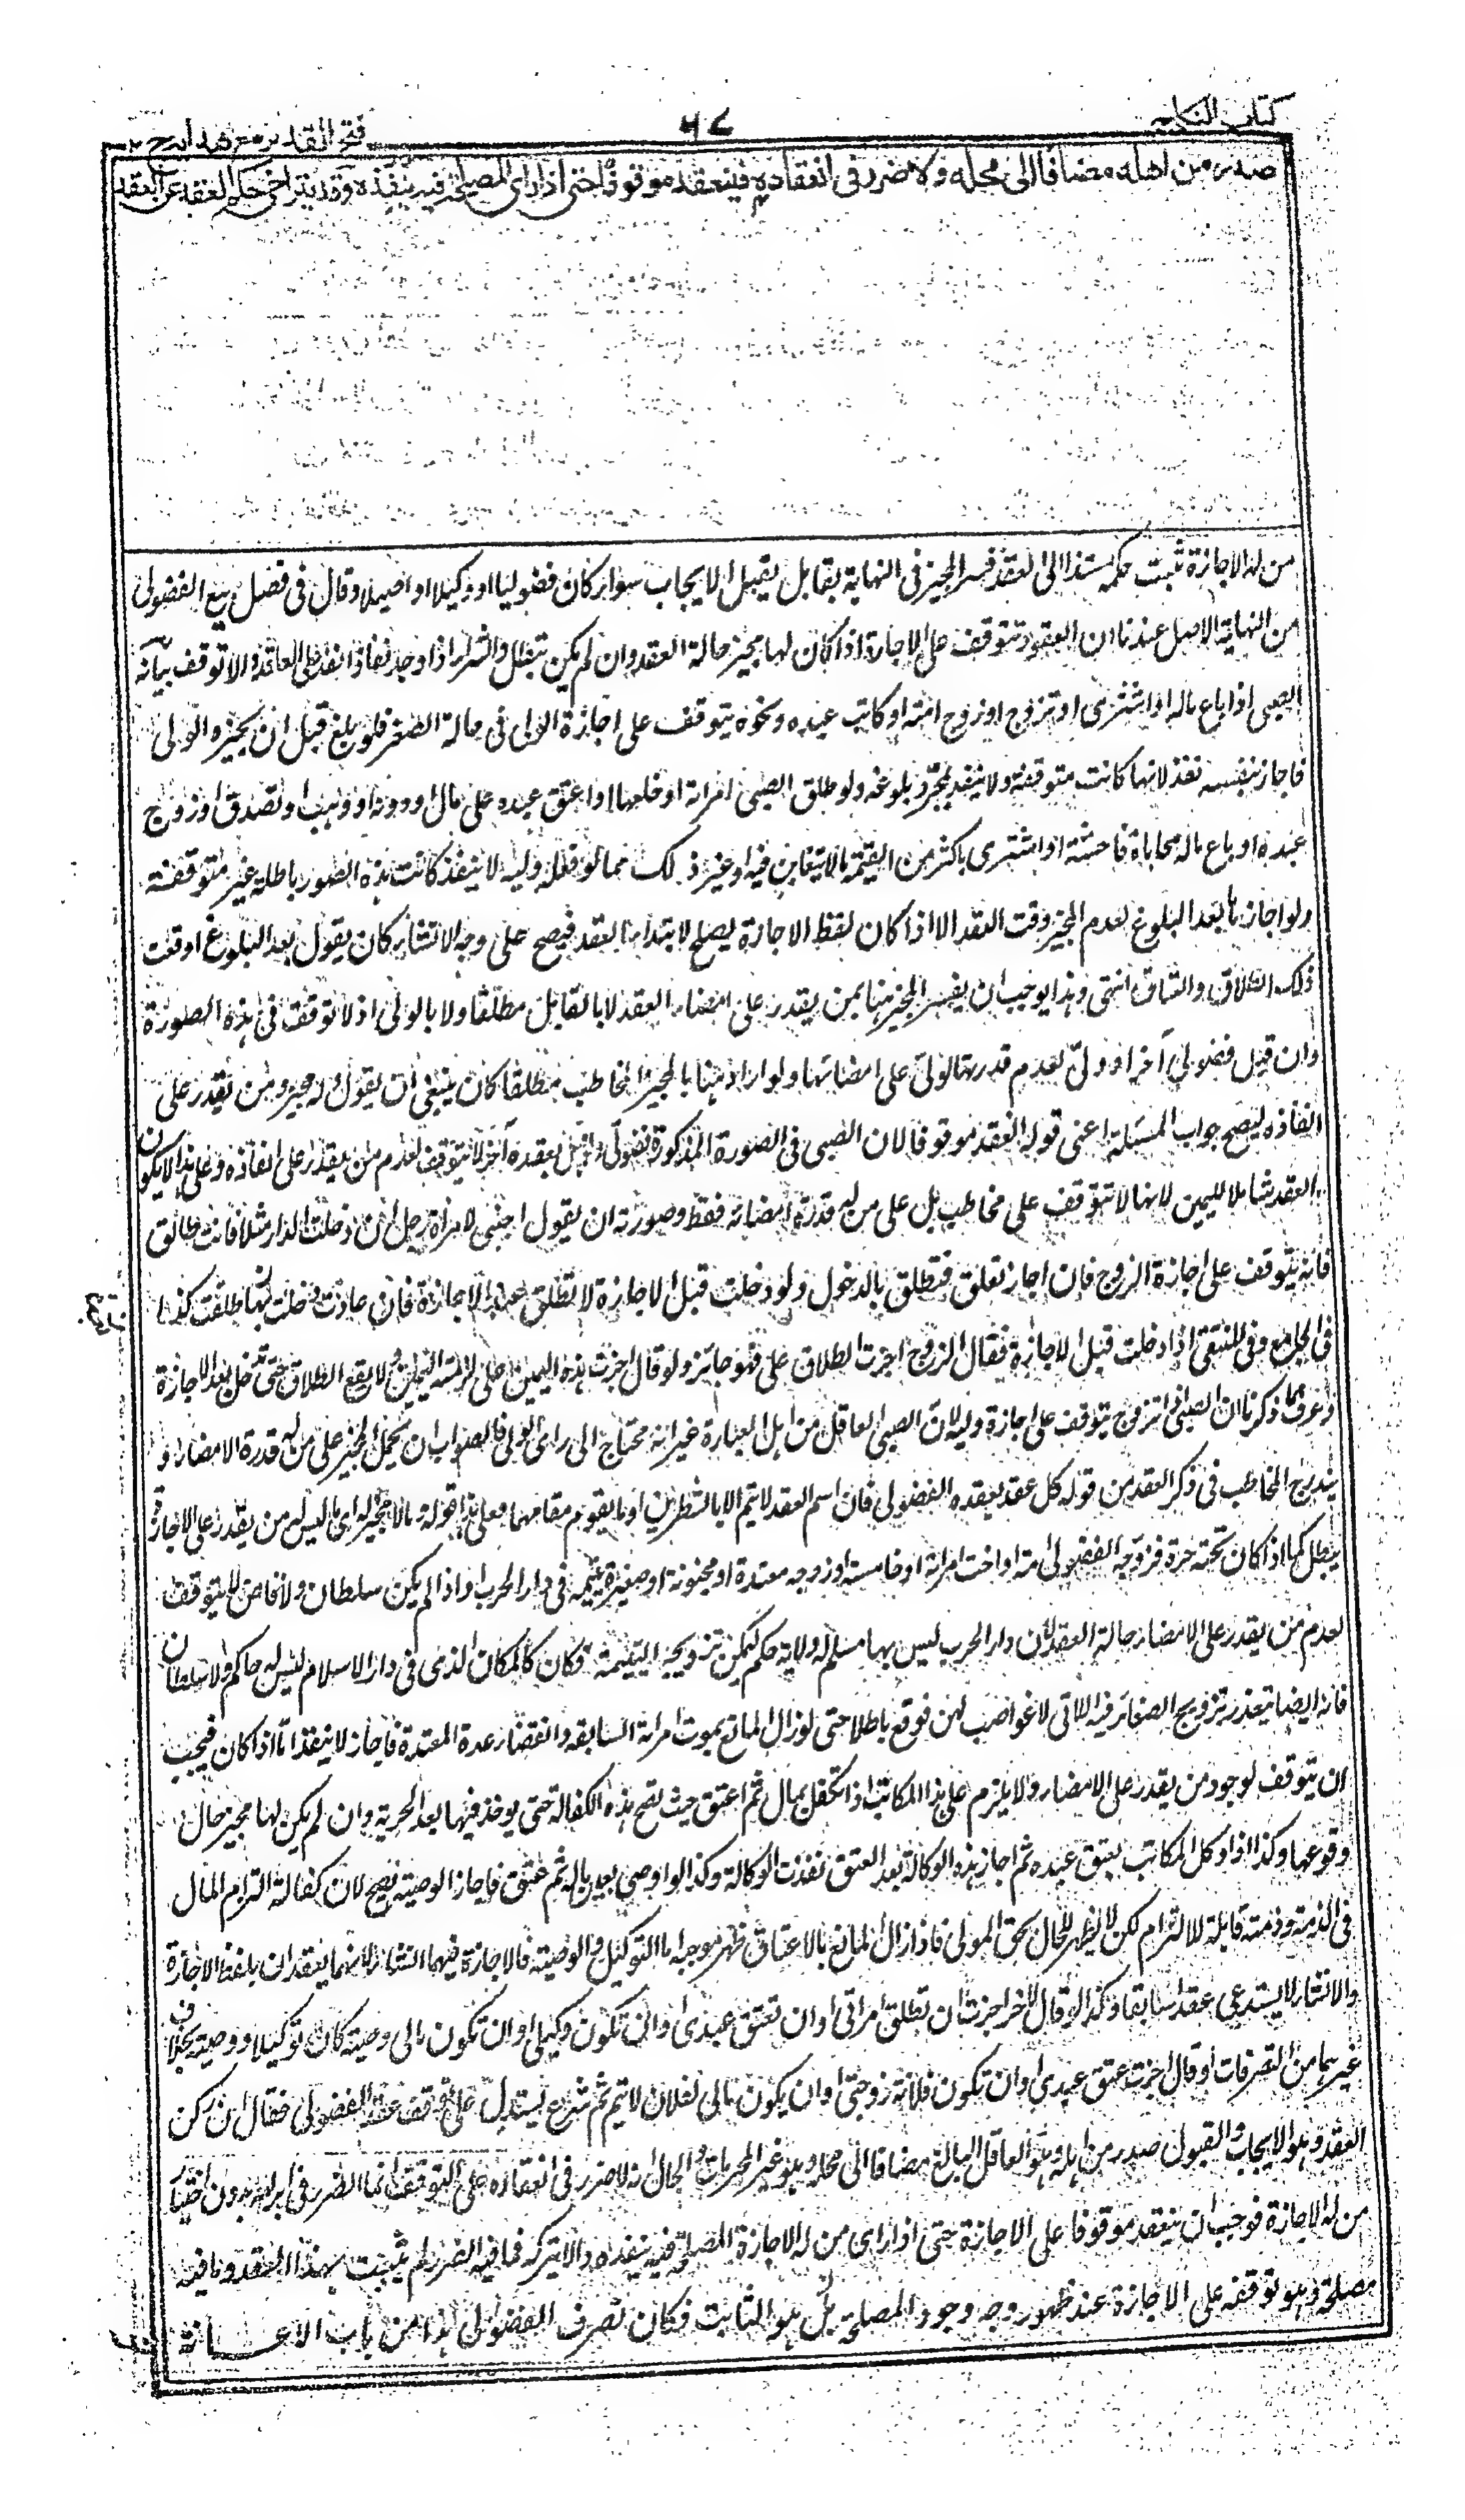 كتاب النكاح
٦٧
فتح القدير مع هداية ج ٢
صدر من اهله مضافا الى محله ولا ضرر فى انعقاده فينعقد موقوفا حتى اذا راى المصلحة فيه ينفذه وقد يتراخى حكم العقد عن العقد
من له الاجازة ثبت حكمه مستندا الى العقد فسر المجيز فى النهاية بقابل يقبل الايجاب سواء كان فضوليا او وكيلا او اصيلا وقال فى فصل بيع الفضولى
من النهاية الاصل عندنا ان العقود تتوقف على الاجازة اذا كان لها مجيز حالة العقد وان لم يكن تبطل والشراء اذا وجد نفاذا نفذ على العاقد والا توقف بيانه
الصبى اذا باع ماله او اشترى او تزوج او زوج امته او كاتب عبده ونحوه يتوقف على اجازة الولى فى حالة الصغر فلو بلغ قبل ان يجيزه الولى
فاجاز بنفسه نفذ لانها كانت متوقفة ولا ينفذ بمجرد بلوغه ولو طلق الصبى امراته او خلعها او اعتق عبده على مال او دونه او وهب او تصدق او زوج
عبده او باع ماله محاباة فاحشة او اشترى باكثر من القيمة ما لا يتغابن فيه او غير ذلك مما لو فعله وليه لا ينفذ كانت هذه الصور باطلة غير متوقفة
ولو اجازها بعد البلوغ لعدم المجيز وقت العقد الا اذا كان لفظ الاجازة يصلح لابتداء العقد فيصح على وجه الانشاء كان يقول بعد البلوغ اوقعت
ذلك الطلاق والعتاق انتهى وهذا يوجب ان يفسر المجيز هنا بمن يقدر على امضاء العقد لا بالقابل مطلقا ولا بالولى اذ لا توقف فى هذه الصورة
وان قبل فضولى آخر او ولى لعدم قدرة الولى على امضائها ولو اراد هنا بالمجيز المخاطب مطلقا كان ينبغى ان يقول وله مجيز ومن يقدر على
انفاذه ليصح جواب المسئلة اعنى قوله انعقد موقوفا لان الصبى فى الصورة المذكورة فضولى ولو قبل عقده آخر لا يتوقف لعدم من يقدر على انفاذه وعلى هذا لا يكون
العقد شاملا لليمين لانها لا تتوقف على مخاطب بل على من له قدرة امضائه فقط وصورته ان يقول اجنبى لامراة رجل ان دخلت الدار مثلا فانت طالق
فانه يتوقف على اجازة الزوج فان اجاز تعلق فتطلق بالدخول ولو دخلت قبل الاجازة لا تطلق عند الاجازة فان عادت ودخلت بعدها طلقت كذا
فى الجامع وفى المنتقى اذا دخلت قبل الاجازة فقال الزوج اجزت الطلاق على فهو جائز ولو قال اجزت هذه اليمين على لزمته اليمين ولا يقع الطلاق حتى تدخل بعد الاجازة
وعرف بما ذكرنا ان الصبى اذا تزوج يتوقف على اجازة وليه لان الصبى العاقل من اهل العبارة غير انه محتاج الى راى الولى فالصواب ان يحمل المجيز على من له قدرة الامضاء و
يندرج المخاطب فى ذكر العقد من قوله كل عقد يعقده الفضولى فان اسم العقد لا يتم الا بالشطرين او ما يقوم مقامهما وعلى هذا قوله وما لا مجيز له اى ما ليس له من يقدر على الاجازة
يبطل كما اذا كان تحته حرة فزوجه الفضولى امة او اخت امراته او خامسة او زوجه معتدة او مجنونة او صغيرة يتيمة فى دار الحرب او اذا لم يكن سلطان ولا قاض لا يتوقف
لعدم من يقدر على الامضاء حالة العقد لان دار الحرب ليس بها مسلم له ولاية حكم ليمكن تزويجه اليتيمة فكان كالمكان الذى فى دار الاسلام ليس له حاكم ولا سلطان
فانه ايضا يتعذر تزويج الصغائر فيه اللاتى لا عواصب لهن فوقع باطلا حتى لو زال المانع بموت امراته السابقة وانقضاء عدة المعتدة فاجاز لا ينفذ اما اذا كان فيجب
ان يتوقف لوجود من يقدر على الامضاء ولا يلزم على هذا المكاتب اذا تكفل بمال ثم اعتق حيث تصح هذه الكفالة حتى يوخذ فيها بعد الحرية وان لم يكن لها مجيز حال
وقوعها وكذا اذا وكل المكاتب بعتق عبده ثم اجاز هذه الوكالة بعد العتق نفذت الوكالة وكذا لو اوصى بعين ماله ثم عتق فاجاز الوصية يصح لان كفالة التزام المال
فى الذمة وذمته قابلة للالتزام لكن لا يظهر للحال بحق المولى فاذا زال المانع بالاعتاق ظهر موجبه اما التوكيل والوصية فالاجازة فيهما انشاء لانهما ينعقدان بلفظ الاجازة
والانشاء لا يستدعى عقدا سابقا وكذا لو قال لآخر اجزت ان تطلق امراتى او ان تعتق عبدى وان تكون وكيلى او ان تكون مالى وصية كان توكيلا ووصية بخلاف
غيرهما من التصرفات او قال اجزت عتق عبدى او ان تكون فلانة زوجتى او ان يكون مالى لفلان لا يتم ثم شرع يستدل على توقف عقد الفضولى فقال ان ركن
العقد وهو الايجاب والقبول صدر من اهله وهو العاقل البالغ مضافا الى محله وهو غير المحرمات والحال انه لا ضرر فى انعقاده على التوقف انما الضرر فى ابرامه بدون اختيار
من له الاجازة فوجب ان ينعقد موقوفا على الاجازة حتى اذا راى من له الاجازة المصلحة فيه ينفذه والا يتركه فما فيه الضرر لم يثبت بهذا العقد وما فيه
مصلحة وهو توقفه على الاجازة عند ظهور وجه وجود المصلحة بل هو الثابت فكان تصرف الفضولى هذا من باب الاعانة